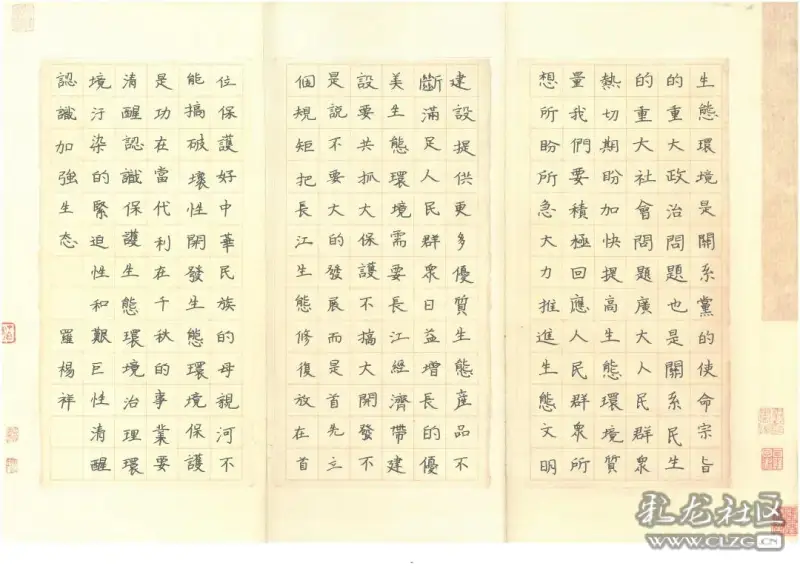 生態環境是關系黨的使命宗旨
的重大政治問題也是關系民生
的重大社會問題廣大人民群衆
熱切期盼加快提高生態環境質
量我們要積極回應人民群衆所
想所盼所急大力推進生態文明
建設提供更多優質生態產品不
斷滿足人民群衆日益增長的優
美生態環境需要長江經濟帶建
設要共抓大保護不搞大開發不
是說不要大的發展而是首先立
個規矩把長江生態修復放在首
位保護好中華民族的母親河不
能搞破壞性開發生態環境保護
是功在當代利在千秋的事業要
清醒認識保護生態環境治理環
境汙染的緊迫性和艱巨性清醒
認識加強生态 羅楊祥
彩龙社区
WWW.CLZG.CN